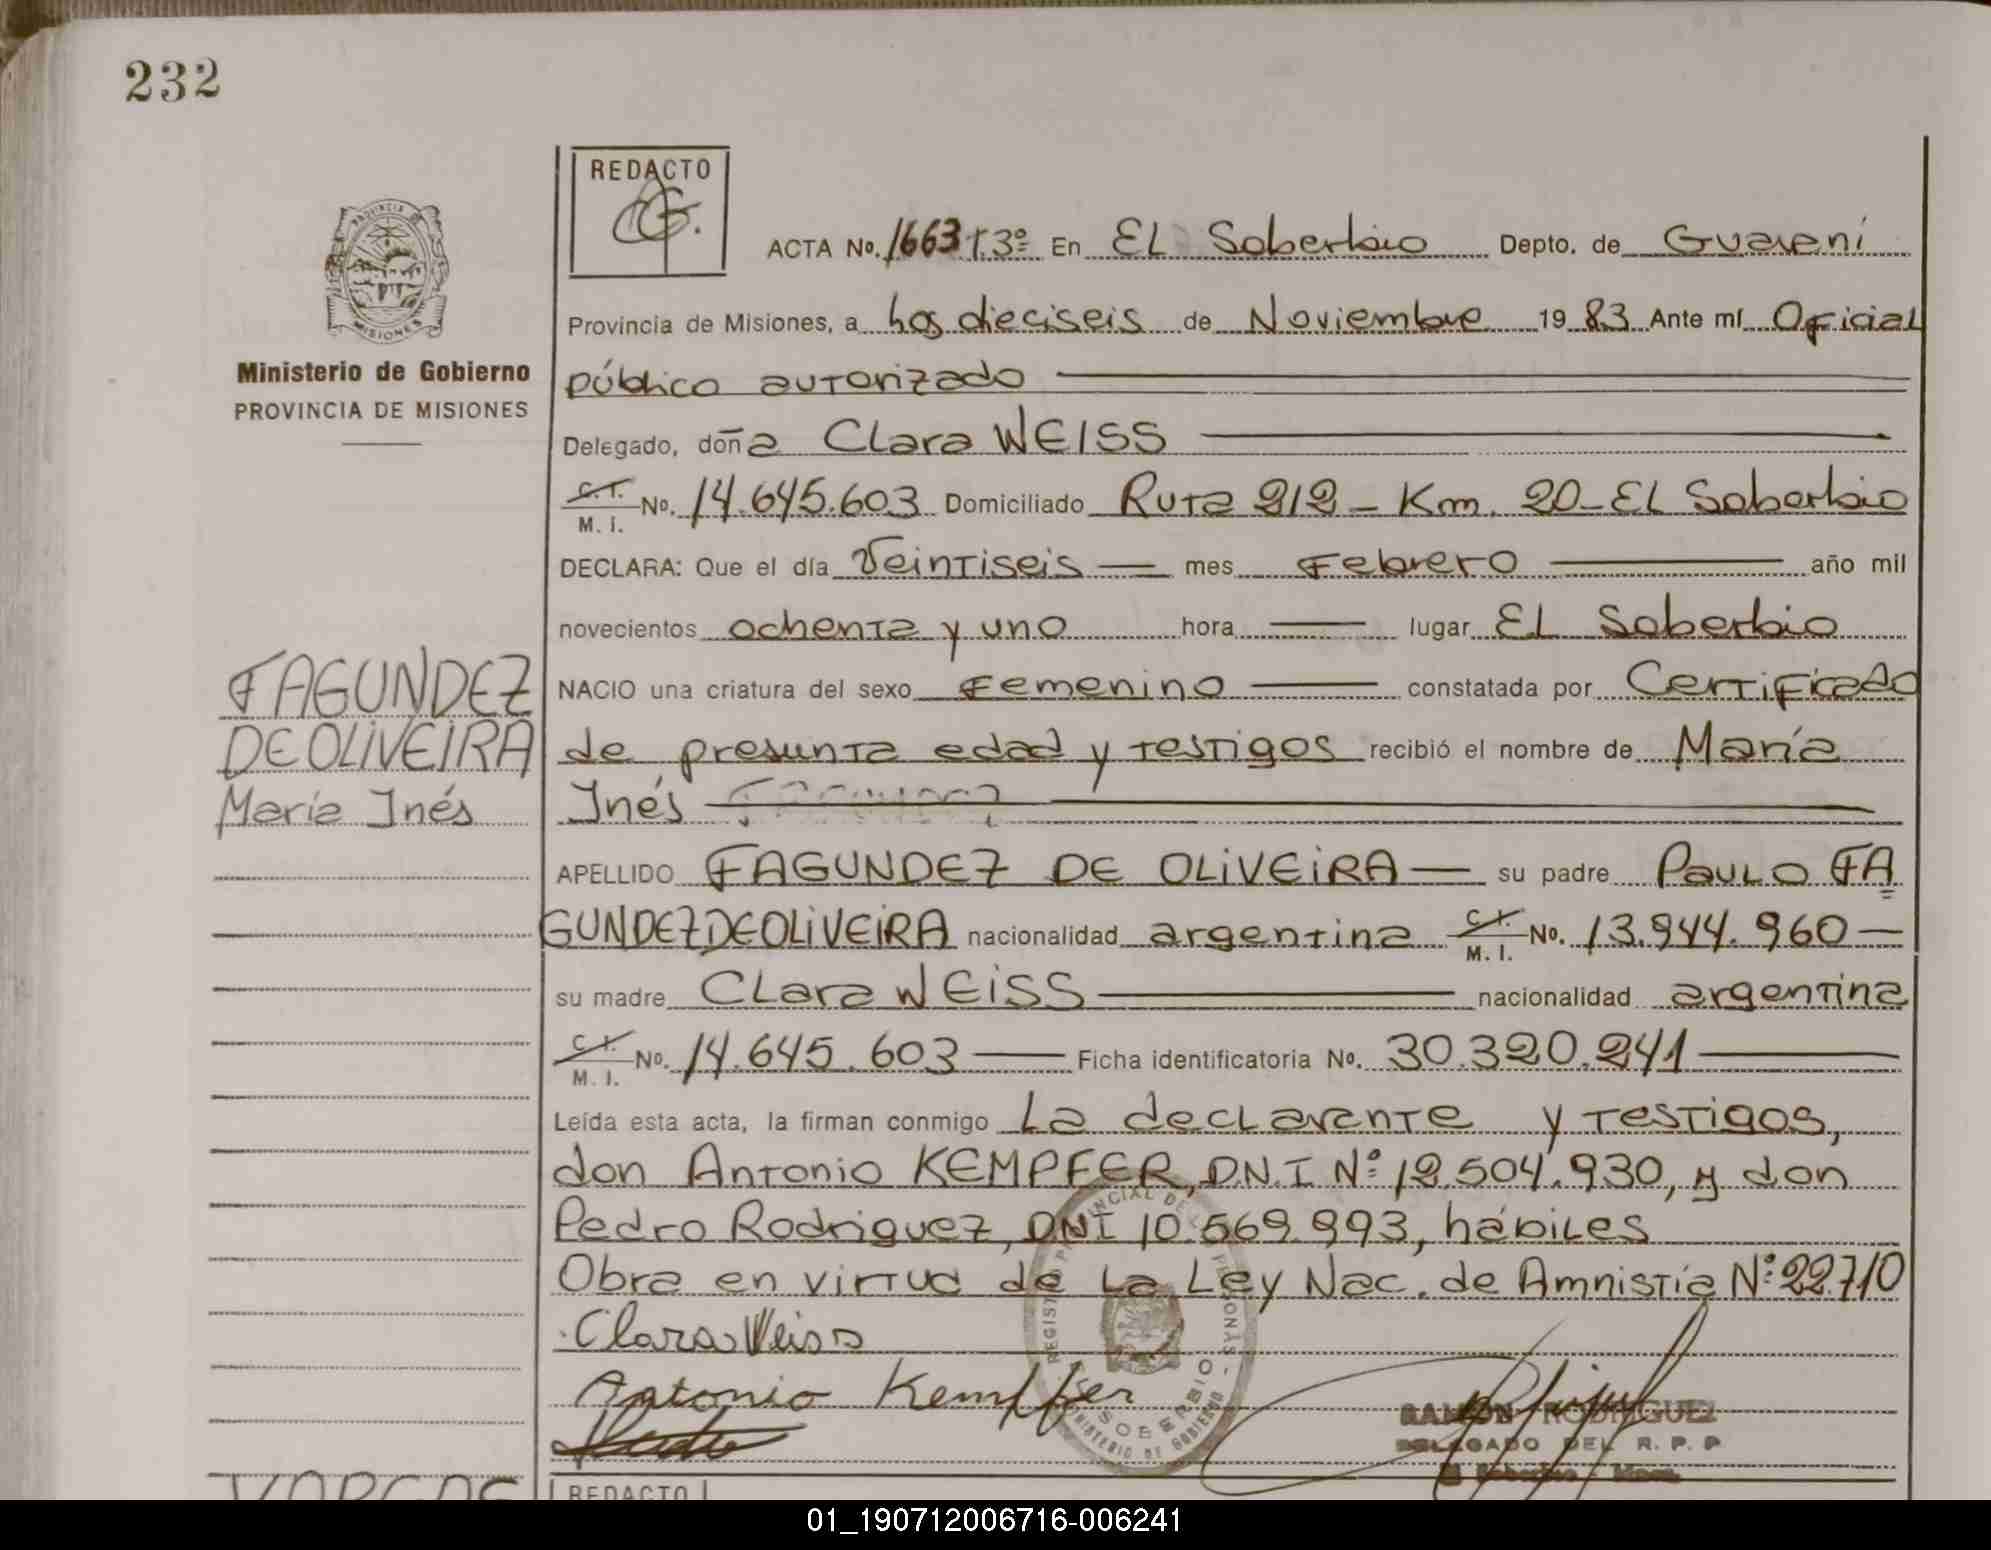 232
REDACTO
PROVINCIA DE
MISIONES
Ministerio de Gobierno
PROVINCIA DE MISIONES
ACTA No. 1663 T.3º En EL Soberbio Depto. de Guaraní
Provincia de Misiones, a Los dieciseis de Noviembre 19 83 Ante mí Oficial
público autorizado
Delegado, doña Clara WEISS
C. I. M. I. No. 14.645.603 Domiciliado Ruta 212 - Km. 20 - EL Soberbio
DECLARA: Que el día Veintiseis mes Febrero año mil
novecientos ochenta y uno hora lugar EL Soberbio
NACIO una criatura del sexo Femenino constatada por Certificado
de presunta edad y testigos recibió el nombre de María
Inés
APELLIDO FAGUNDEZ DE OLIVEIRA su padre PAULO FA
GUNDEZ DE OLIVEIRA nacionalidad argentina C. I. M. I. No. 13.944.960
su madre Clara WEISS nacionalidad argentina
C. I. M. I. No. 14.645.603 Ficha identificatoria No. 30.320.241
Leída esta acta, la firman conmigo La declarante y testigos,
don Antonio KEMPFER, D.N.I Nº 12.504.930, y don
Pedro Rodriguez, DNI 10.569.993, hábiles
Obra en virtud de La Ley Nac. de Amnistía Nº 22.710
Clara Weiss
Antonio Kempfer
FAGUNDEZ
DE OLIVEIRA
María Inés
SOBERBIO
MINISTERIO DE GOBIERNO
RAMON RODRIGUEZ
DELEGADO DEL R. P. P
El Soberbio
REDACTO
01_190712006716-006241